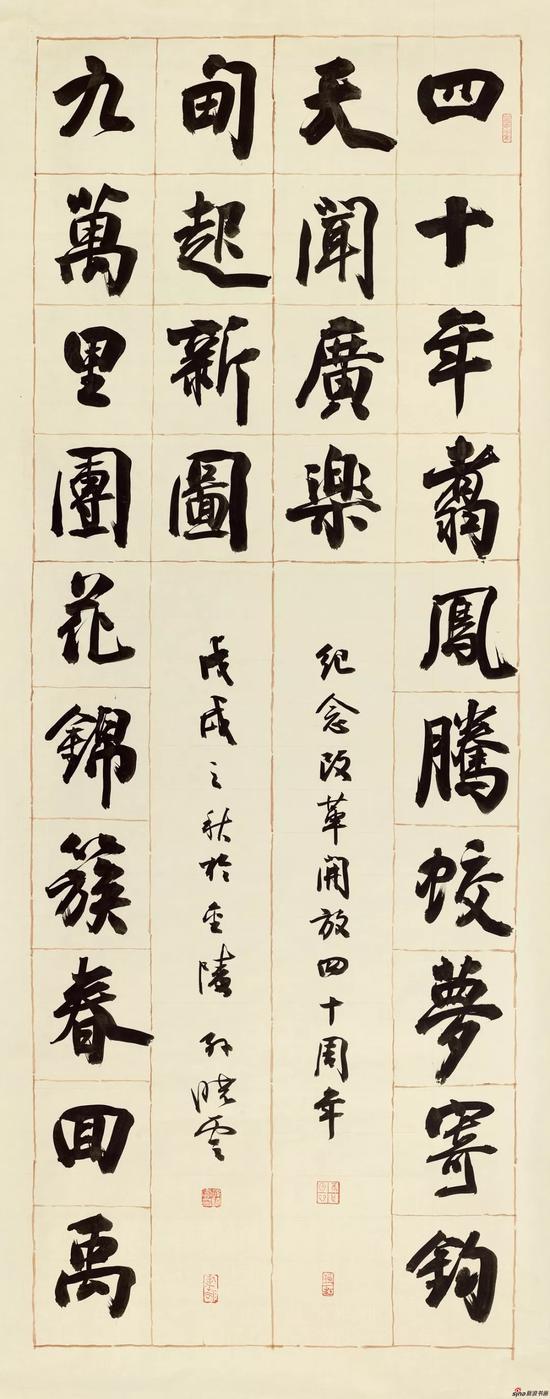 四十年翥鳳騰蛟夢寄鈞
天聞廣樂
紀念改革開放四十周年
九萬里團花錦簇春回禹
甸起新圖
戊戌之秋於金陵 孫曉雲
sina新浪书画